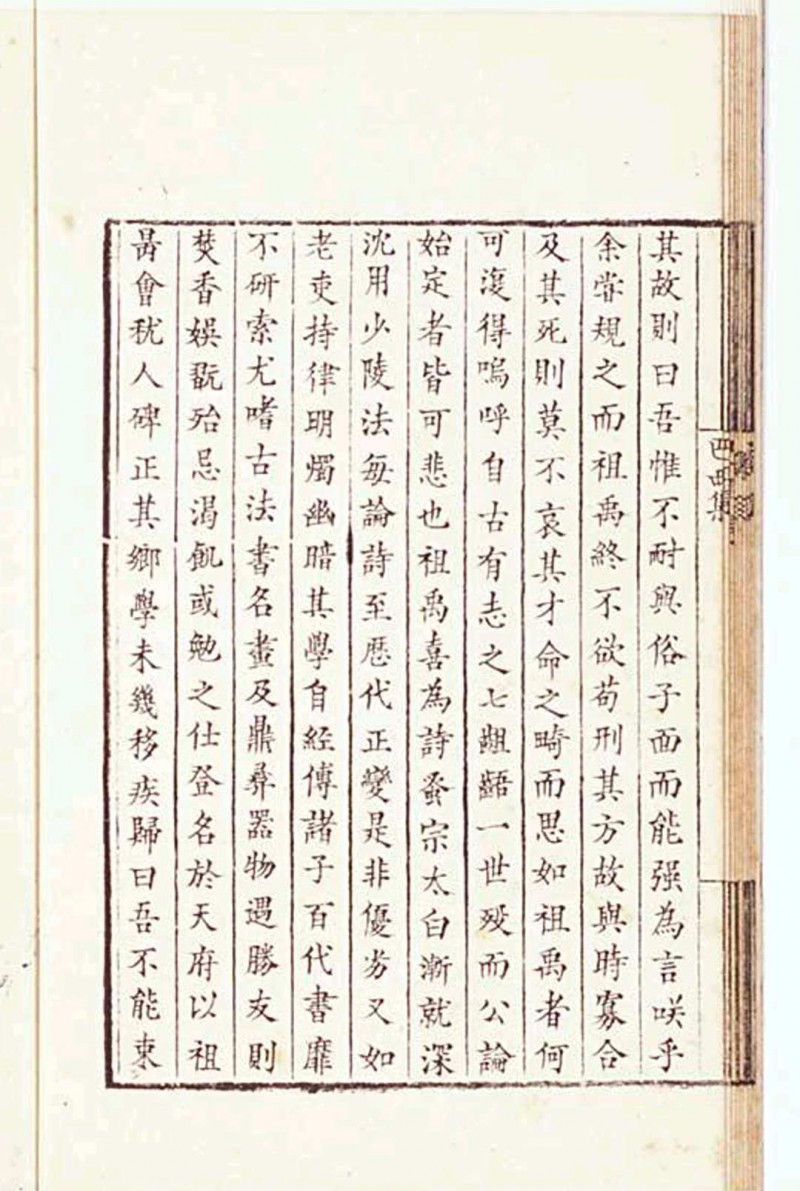 巴西集
其故則曰吾惟不耐與俗子面而能强為言咲乎
余甞規之而祖禹終不欲苟刑其方故與時寡合
及其死則莫不哀其才命之畸而思如祖禹者何
可復得嗚呼自古有志之士齟齬一世歿而公論
始定者皆可悲也祖禹喜為詩蚤宗太白漸就深
沈用少陵法每論詩至歷代正變是非優劣又如
老吏持律明燭幽暗其學自經傳諸子百代書靡
不研索尤嗜古法書名畫及鼎彞器物遇勝友則
焚香娛翫殆忌渴飢或勉之仕登名於天府以祖
禼會秋人碑正其鄉學未幾移疾歸曰吾不能束